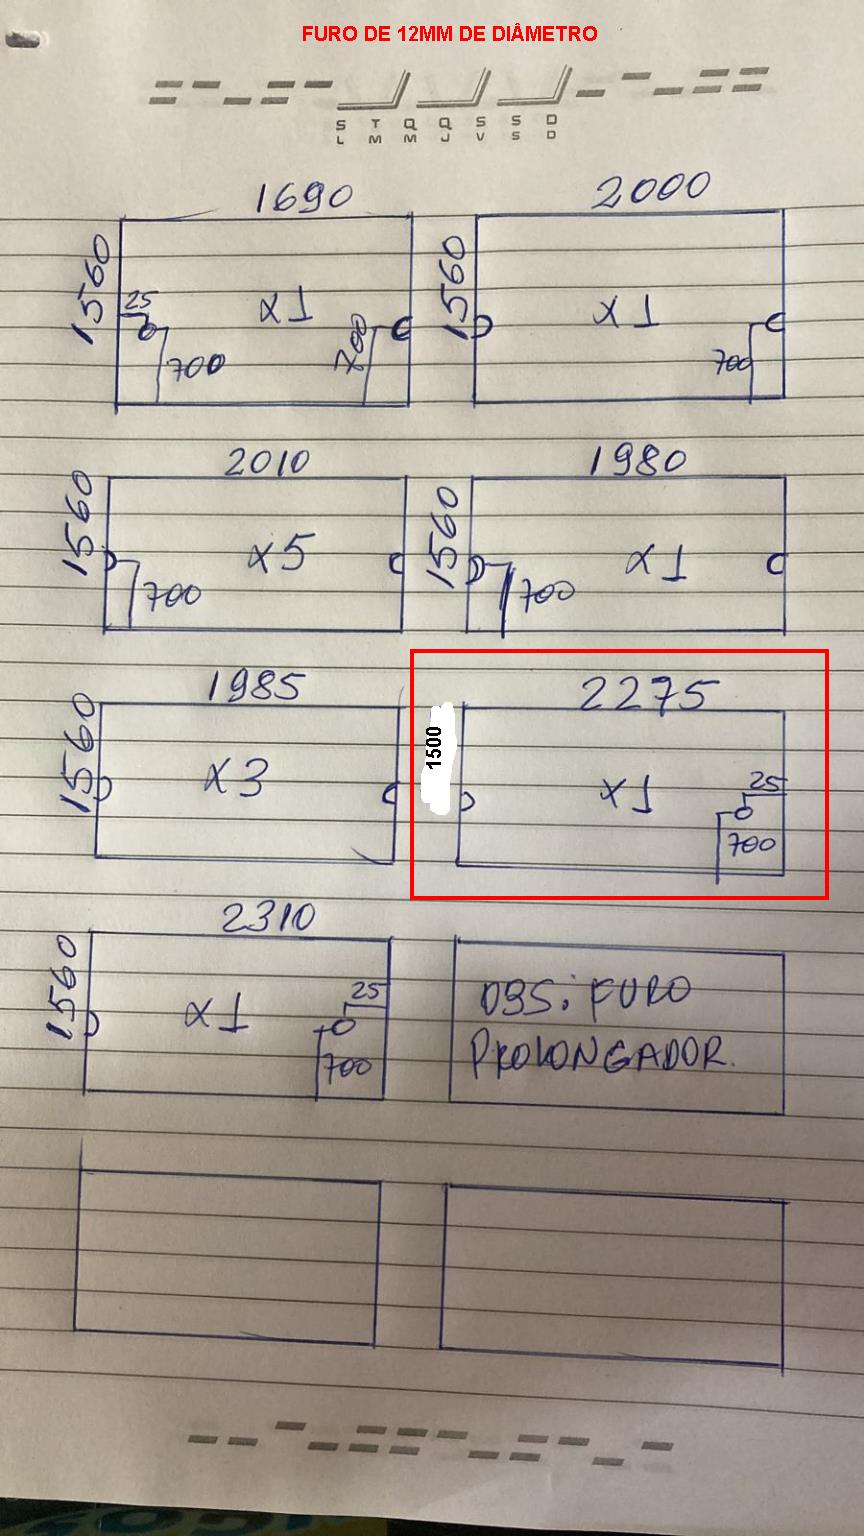 FURO DE 12MM DE DIÂMETRO
S T Q Q S S D
L M M J V S D
1690
1560
25
x1
700
700
2000
1560
x1
700
2010
1560
x5
700
1980
1560
x1
700
1985
1560
x3
2275
1500
x1
25
700
2310
1560
x1
25
700
OBS: FURO
PROLONGADOR.